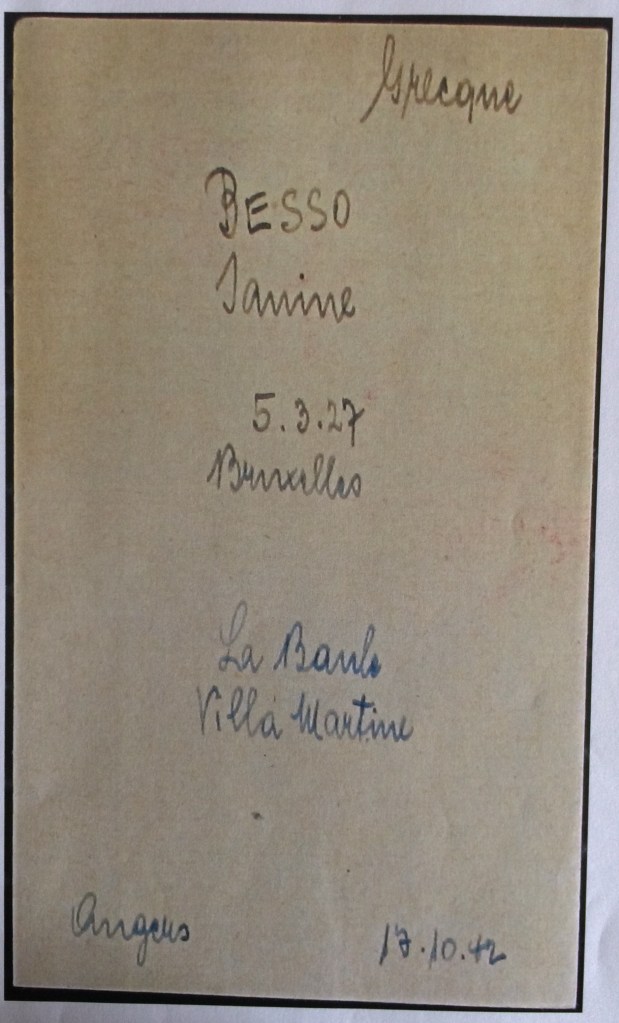 Grecque
BESSO
Janine
5.3.27
Bruxelles
La Baule
Villa Martine
Angers
17.10.42